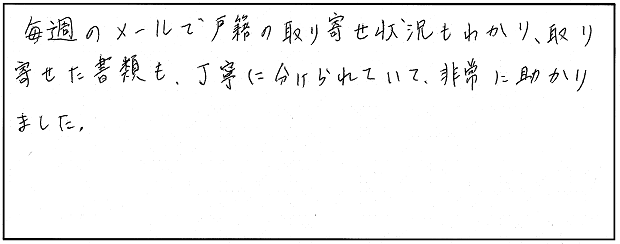 毎週のメールで戸籍の取り寄せ状況もわかり、取り
寄せた書類も、丁寧に分けられていて、非常に助かり
ました。